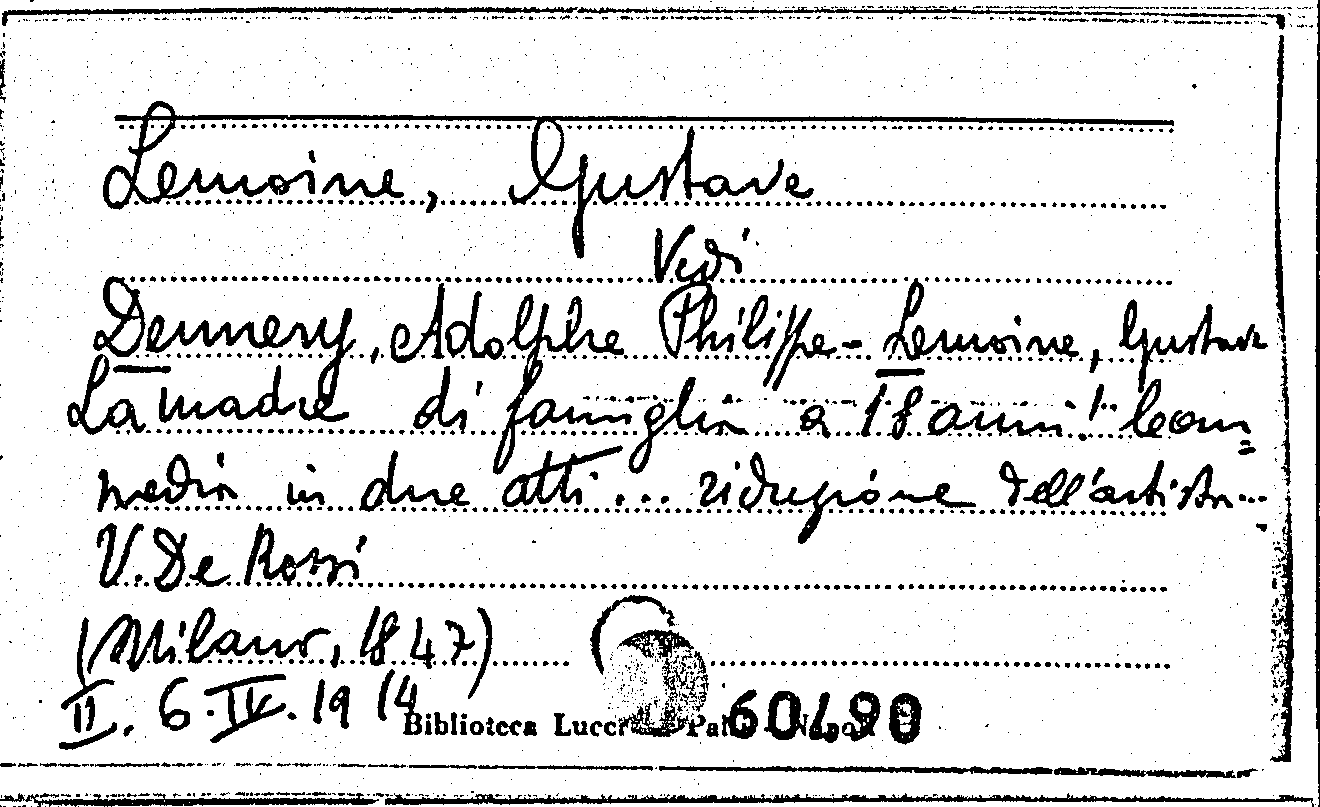 Lemoine, Gustave
Vedi
Dennery, Adolphe Philippe - Lemoine, Gustave
La madre di famiglia a 18 anni! Com=
media in due atti... riduzione dell'artista...
V. De Rossi
(Milano, 1847)
II. 6. IV. 19 (4
Biblioteca Lucchesi Palli - Napoli
60490